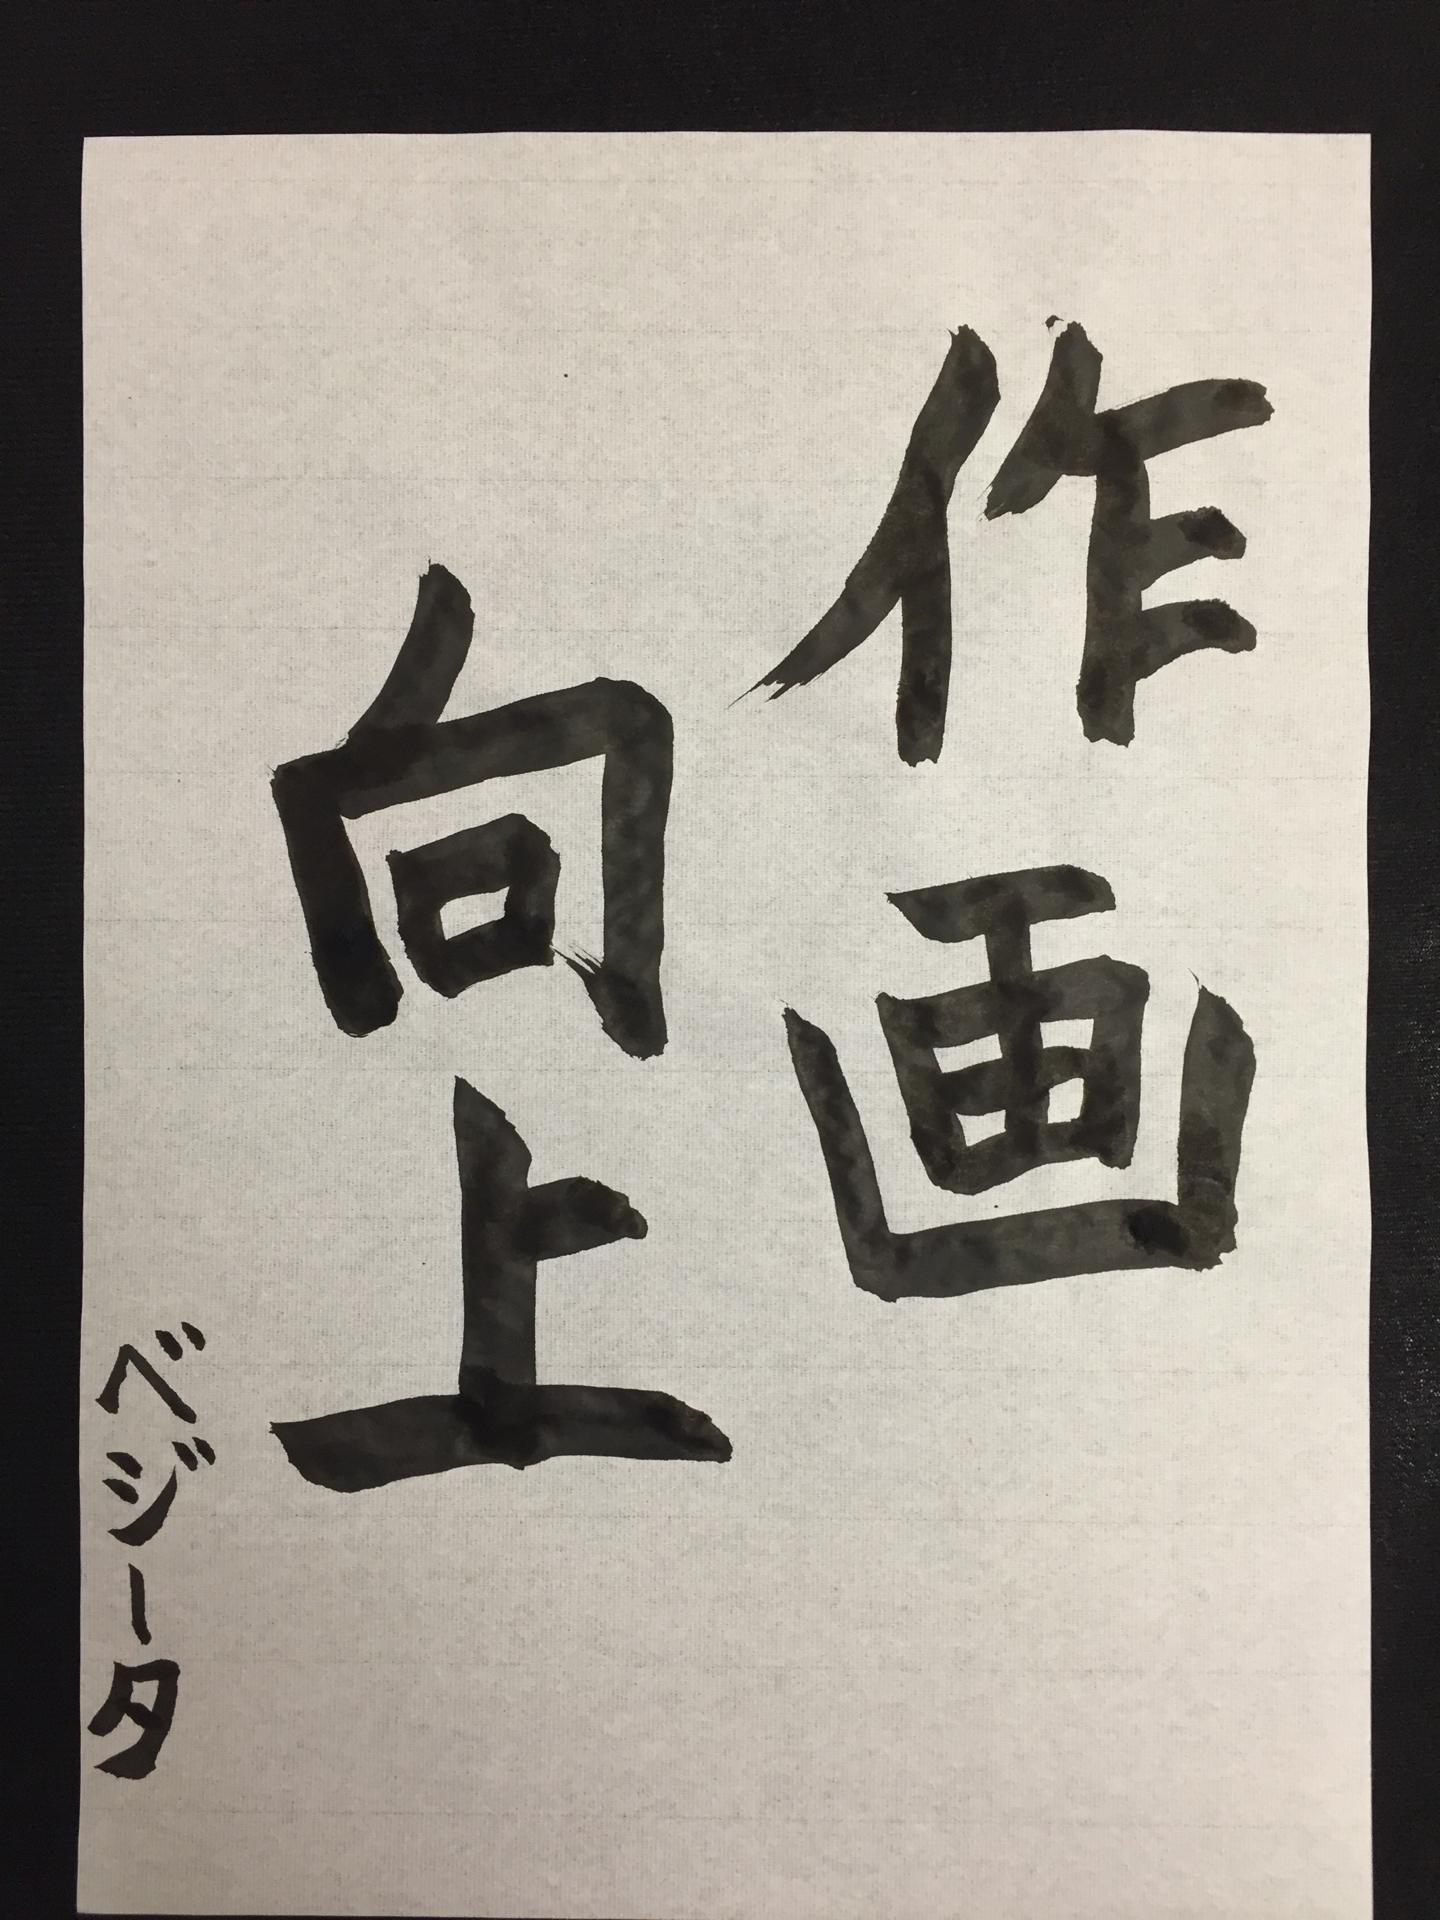 作画
向上
ベジータ